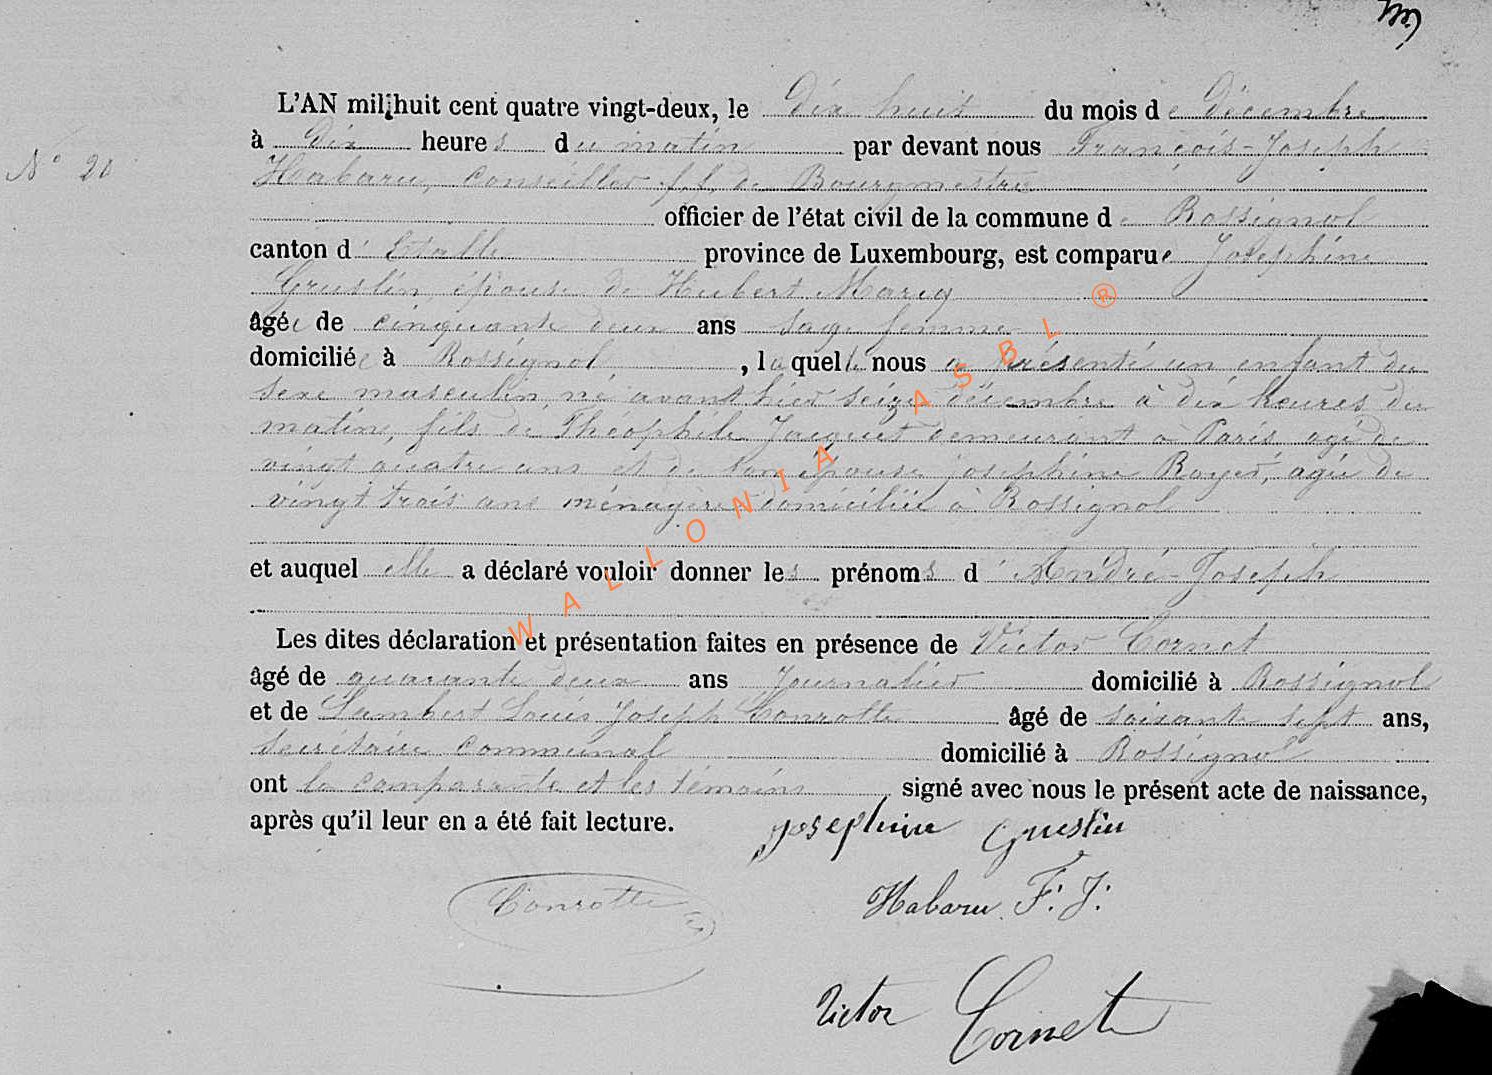 L'AN mil huit cent quatre vingt-deux, le dix huit du mois de décembre
à dix heures du matin par devant nous François-Joseph
N° 20
Habaru, conseiller f.f. de Bourgmestre
officier de l'état civil de la commune de Rossignol
canton d'Etalle province de Luxembourg, est comparue Joséphine
Guslin, épouse de Hubert Marcy
âgée de cinquante deux ans sage femme
domiciliée à Rossignol, laquelle nous a présenté un enfant du
sexe masculin, né avant hier seize décembre à dix heures du
matin, fils de Théophile Jacquet demeurant à Paris agé de
vingt quatre ans et de son épouse joséphine Royer, agée de
vingt trois ans ménagère domiciliée à Rossignol
et auquel elle a déclaré vouloir donner les prénoms d'André-Joseph
Les dites déclaration et présentation faites en présence de Victor Cornet
âgé de quarante deux ans Journalier domicilié à Rossignol
et de Lambert Louis Joseph Conrotte âgé de soixante sept ans,
secrétaire communal domicilié à Rossignol
ont la comparante et les témoins signé avec nous le présent acte de naissance,
après qu'il leur en a été fait lecture. Josephine Guslin
Conrotte
Habaru F. J.
Victor Cornet
WALLONIA ASBL ®